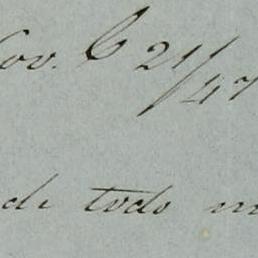 Cov. C 21/47
de todo m